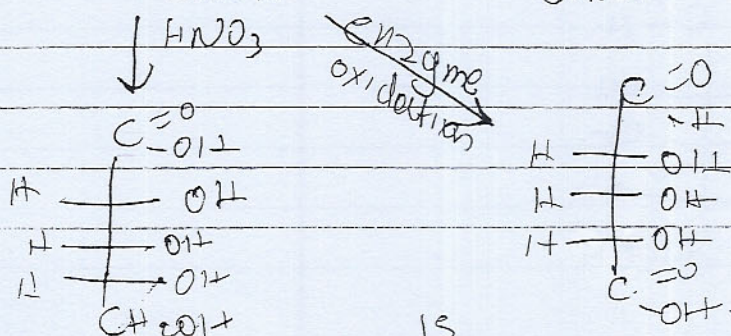 HNO3
enzyme
oxidation
C =O
-OH
H OH
H OH
H OH
CH2OH
C =O
-H
H OH
H OH
H OH
C =O
-OH
15